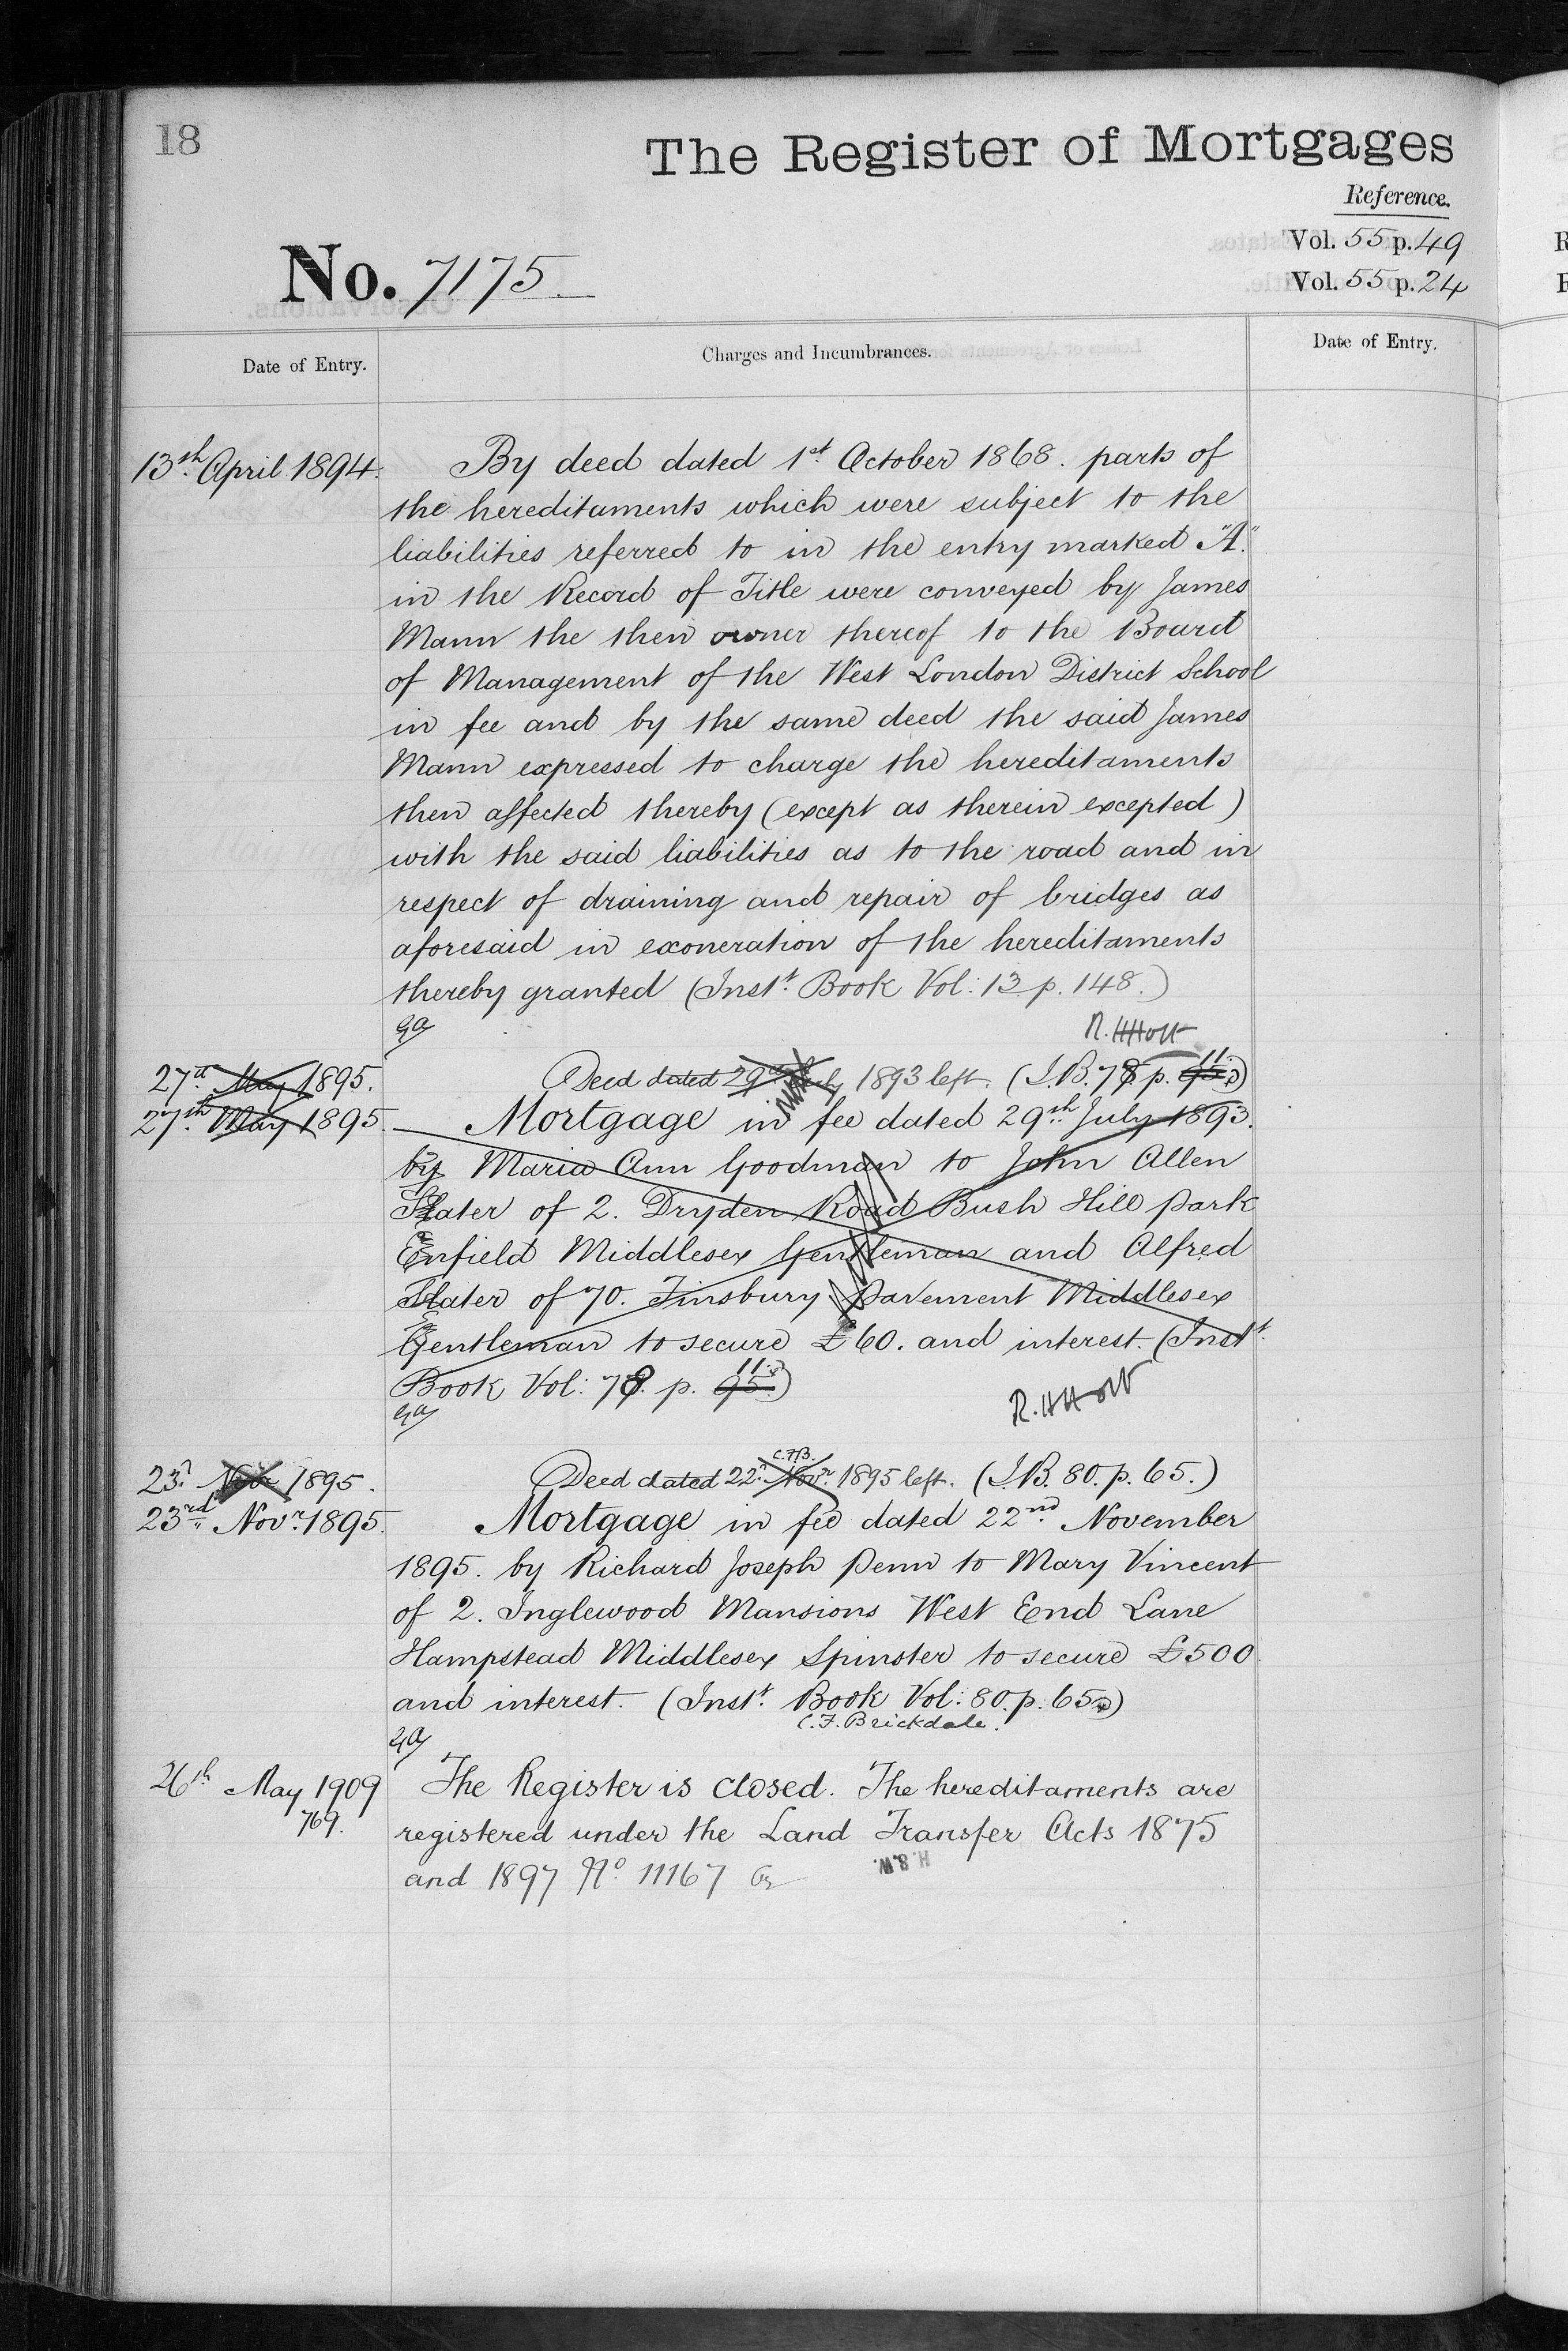 18
The Register of Mortgages
Reference.
Vol. 55 p. 49
No. 7175.
Vol. 55 p. 24
Date of Entry.
Charges and Incumbrances.
Date of Entry.
13th April 1894. By deed dated 1st October 1868. parts of
the hereditaments which were subject to the
liabilities referred to in the entry marked "A."
in the Record of Title were conveyed by James
Mann the then owner thereof to the Board
of Management of the West London District School
in fee and by the same deed the said James
Mann expressed to charge the hereditaments
then affected thereby (except as therein excepted)
with the said liabilities as to the road and in
respect of draining and repair of bridges as
aforesaid in exoneration of the hereditaments
thereby granted (Inst. Book Vol: 13 p. 148.)
R. H Holt
27th May 1895. Deed dated 29th July 1893 left. (I.B. 78 p. 95 11.)
27th May 1895. Mortgage in fee dated 29th July 1893.
by Maria Ann Goodman to John Allen
Slater of 2. Dryden Road Bush Hill Park
Enfield Middlesex Gentleman and Alfred
Slater of 70. Finsbury Pavement Middlesex
Gentleman to secure £60. and interest. (Instt.
Book Vol: 78. p. 95. 11.)
R. H Holt
C.F.B.
23d Nov 1895. Deed dated 22d Novr. 1895 left. (I.B. 80. p. 65.)
23rd Novr. 1895. Mortgage in fee dated 22nd November
1895. by Richard Joseph Penn to Mary Vincent
of 2. Inglewood Mansions West End Lane
Hampstead Middlesex Spinster to secure £500
and interest. (Instt. Book Vol: 80. p. 65)
C. F. Brickdale.
26th May 1909 The Register is closed. The hereditaments are
769. registered under the Land Transfer Acts 1875
and 1897 No. 11167
H.8.W.